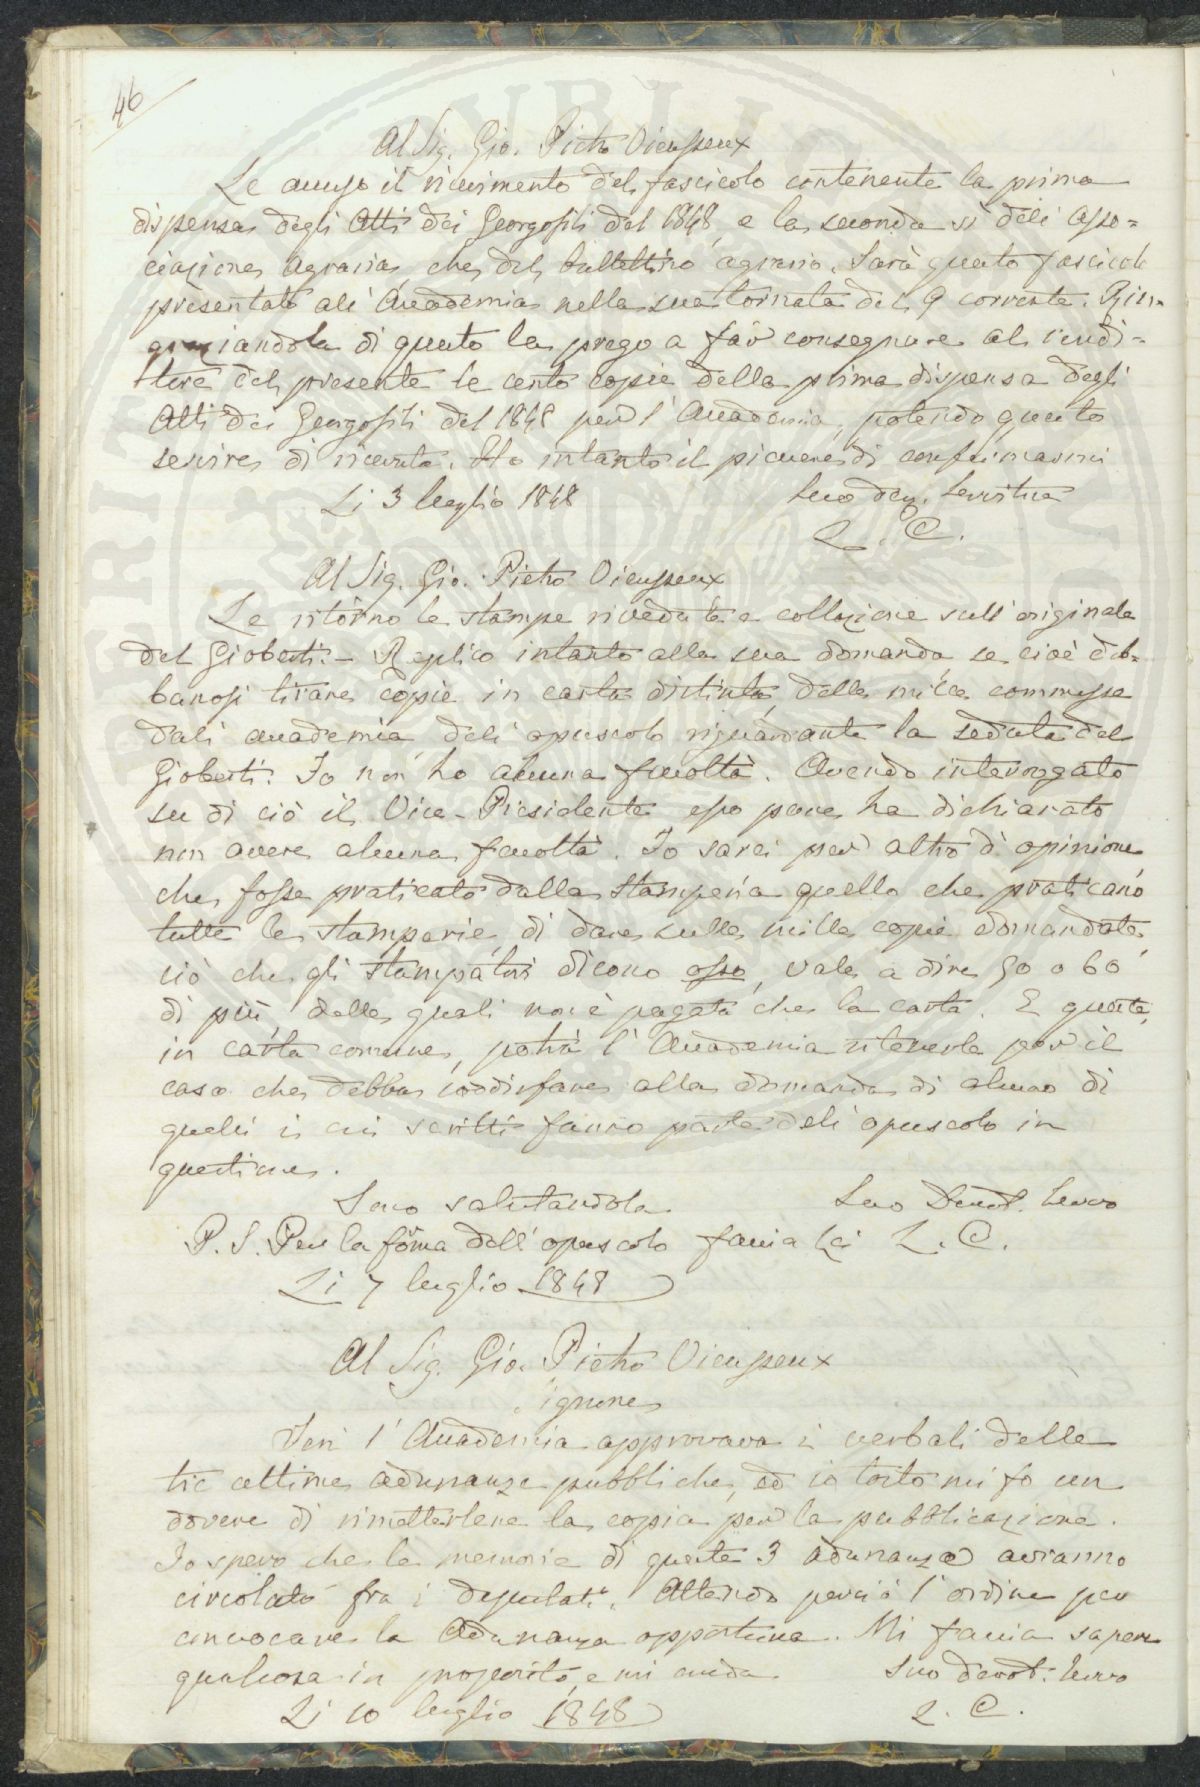 46
Al Sig. Gio. Pietro Vieusseux
Le accuso il ricevimento del fascicolo contenente la prima
dispensa degli Atti dei Georgofili del 1848, e la seconda sì dell' Asso=
ciazione Agraria che del bullettino agrario. Sarà questo fascicolo
presentato all' Accademia nella sua tornata del 9 corrente. Rin=
graziandola di questo la prego a far consegnare al rendi=
tore del presente le cento copie della prima dispensa degli
Atti dei Georgofili del 1848 per l' Accademia, potendo questo
servire di ricevuta. Ho intanto il piacere di confermarmi
Li 3 luglio 1848 Suo dev. Servitore
L. C.
Al Sig. Gio. Pietro Vieusseux
Le ritorno le stampe rivedute e collazione sull' originale
del Gioberti. – Replico intanto alla sua domanda se cioè deb=
bansi tirare copie in carta distinta delle mille commesse
dall' accademia dell' opuscolo riguardante la seduta del
Gioberti. Io non ho alcuna facoltà. Avendo interrogato
su di ciò il Vice-Presidente esso pure ha dichiarato
non avere alcuna facoltà. Io sarei per altro d' opinione
che fosse praticato dalla stamperia quello che praticano
tutte le stamperie, di dare sulle mille copie domandate,
ciò che gli stampatori dicono osso, vale a dire 50 o 60
di più delle quali non è pagata che la carta. E queste
in carta comune, potrà l' Accademia ritenerle per il
caso che debba soddisfare alla domanda di alcuno di
quelli i cui scritti fanno parte dell' opuscolo in
questione.
Sono salutandola Suo Devot. Servo
P. S. Per la forma dell' opuscolo faccia Lei L. C.
Li 7 luglio 1848
Al Sig. Gio. Pietro Vieusseux
ignore
Ieri l' Accademia approvava i verbali delle
tre ultime adunanze pubbliche, ed io tosto mi fo un
dovere di rimetterlene la copia per la pubblicazione.
Io spero che le memorie di queste 3 adunanze avranno
circolato fra i deputati. Attendo perciò l' ordine per
convocare la Adunanza opportuna. Mi faccia sapere
qualcosa in proposito, e mi creda suo devot. servo
Li 10 luglio 1848 L. C.